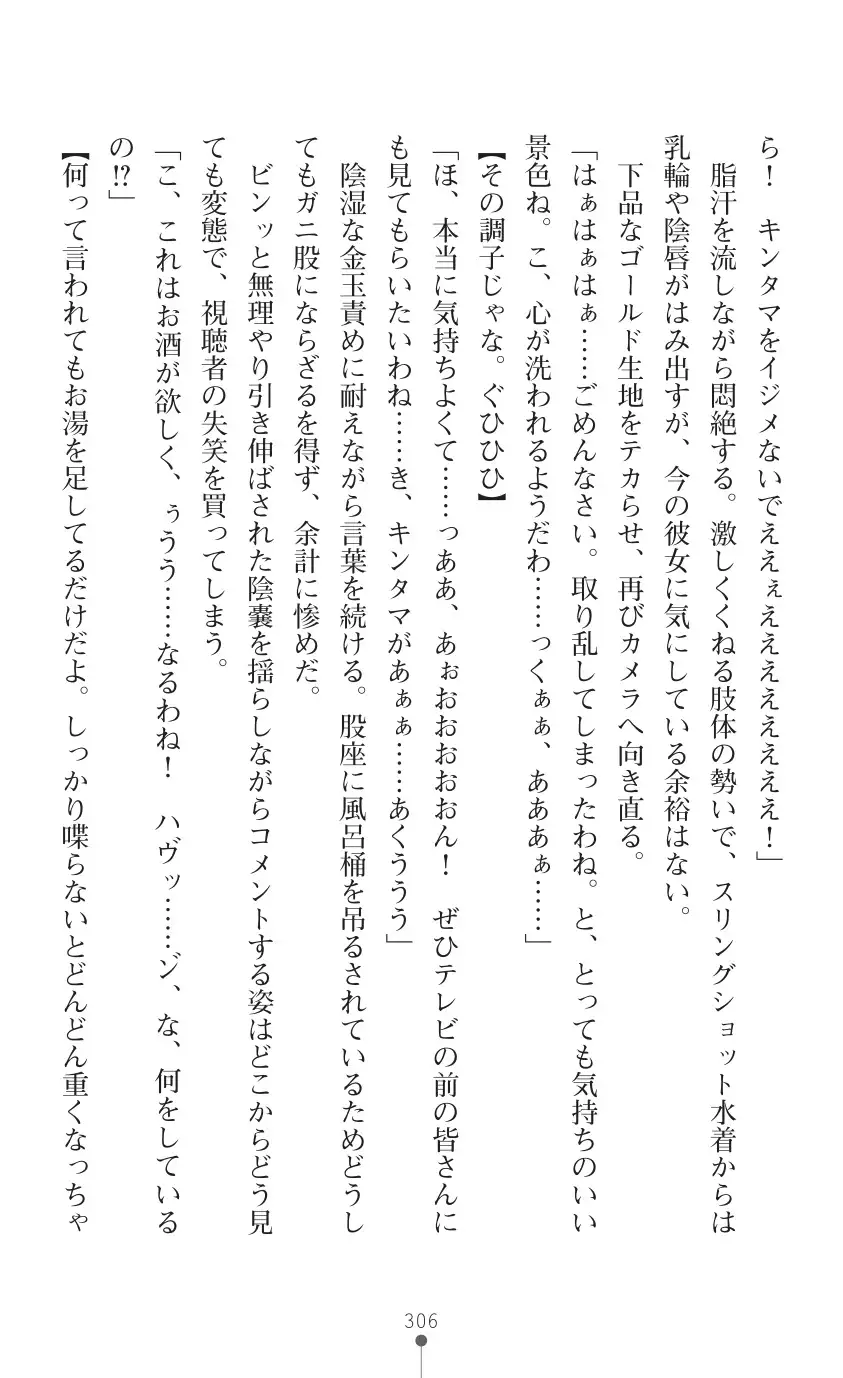 ら！　キンタマをイジメないでええぇええええええええ！」
　脂汗を流しながら悶絶する。激しくくねる肢体の勢いで、スリングショット水着からは
乳輪や陰唇がはみ出すが、今の彼女に気にしている余裕はない。
　下品なゴールド生地をテカらせ、再びカメラへ向き直る。
「はぁはぁはぁ……ごめんなさい。取り乱してしまったわね。と、とっても気持ちのいい
景色ね。こ、心が洗われるようだわ……っくぁぁ、あああぁ……」
【その調子じゃな。ぐひひひ】
「ほ、本当に気持ちよくて……っああ、あぉおおおおおん！　ぜひテレビの前の皆さんに
も見てもらいたいわね……き、キンタマがあぁぁ……あくううう」
　陰湿な金玉責めに耐えながら言葉を続ける。股座に風呂桶を吊るされているためどうし
てもガニ股にならざるを得ず、余計に惨めだ。
　ビンッと無理やり引き伸ばされた陰嚢を揺らしながらコメントする姿はどこからどう見
ても変態で、視聴者の失笑を買ってしまう。
「こ、これはお酒が欲しく、ぅうう……なるわね！　ハヴッ……ゾ、な、何をしている
の!?」
【何って言われてもお湯を足してるだけだよ。しっかり喋らないとどんどん重くなっちゃ
306